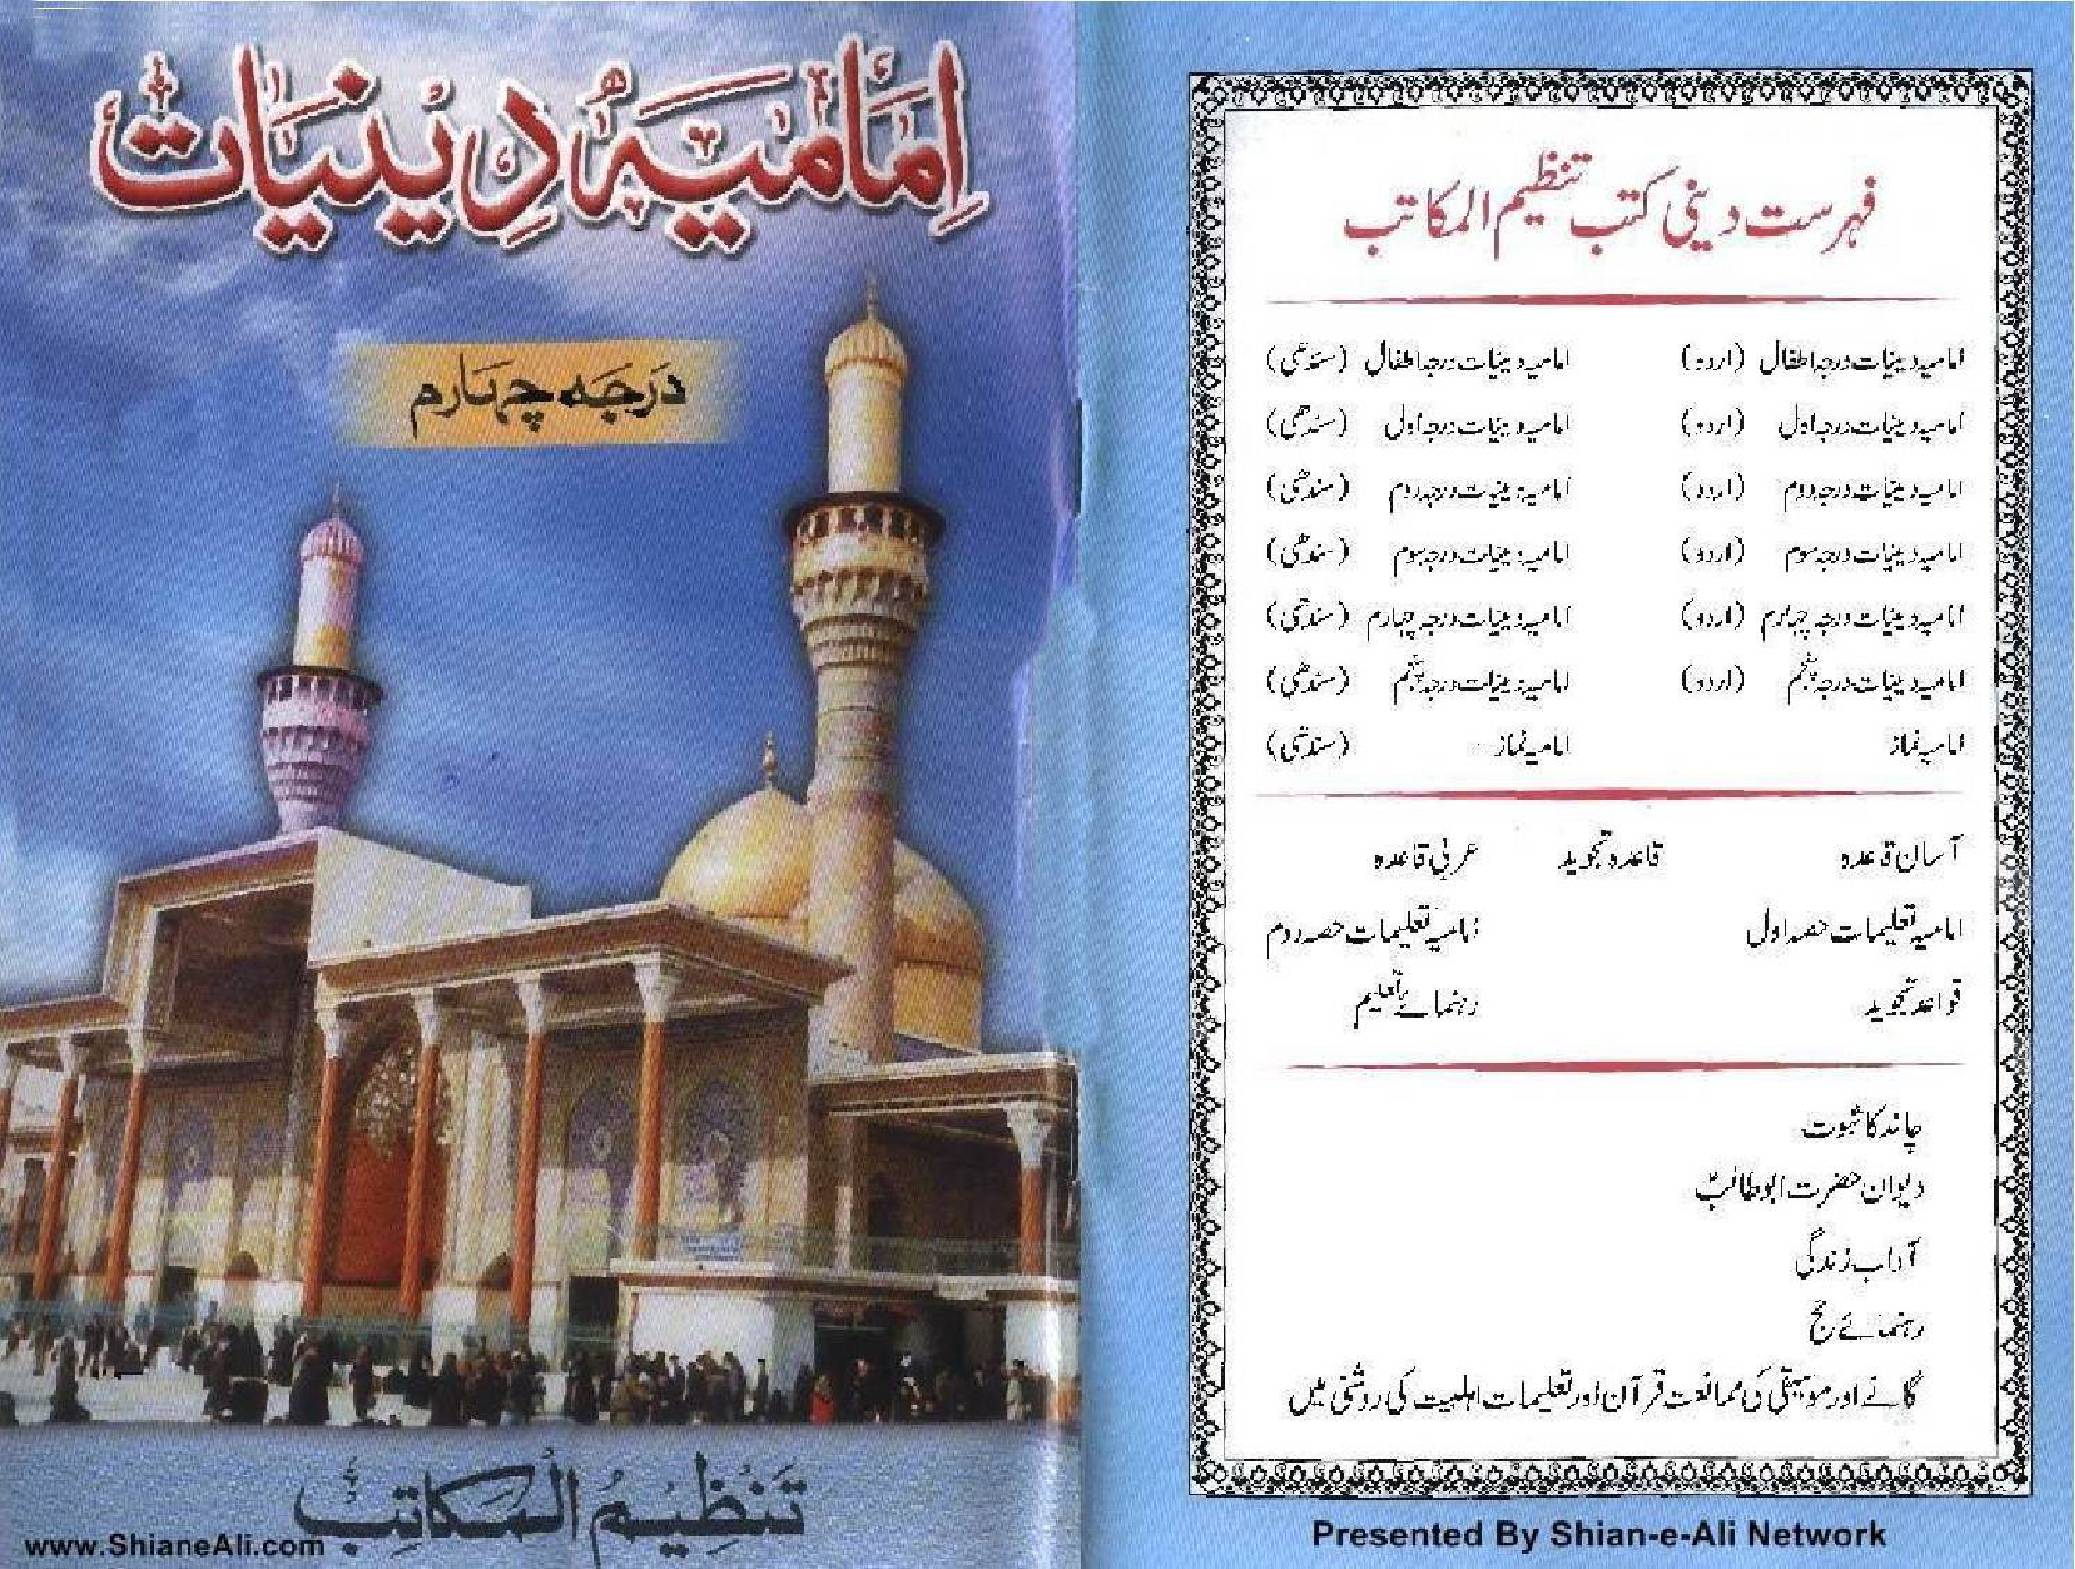 امامیہ دینیات
درجہ چہارم
تنظیم المکاتب
www.ShianeAli.com
فہرست دینی کتب تنظیم المکاتب
امامیہ دینیات درجہ اطفال (اردو) امامیہ دینیات درجہ اطفال (سندھی)
امامیہ دینیات درجہ اول (اردو) امامیہ دینیات درجہ اول (سندھی)
امامیہ دینیات درجہ دوم (اردو) امامیہ دینیات درجہ دوم (سندھی)
امامیہ دینیات درجہ سوم (اردو) امامیہ دینیات درجہ سوم (سندھی)
امامیہ دینیات درجہ چہارم (اردو) امامیہ دینیات درجہ چہارم (سندھی)
امامیہ دینیات درجہ پنجم (اردو) امامیہ دینیات درجہ پنجم (سندھی)
امامیہ نماز امامیہ نماز (سندھی)
آسان قاعدہ قاعدہ تجوید عربی قاعدہ
امامیہ تعلیمات حصہ اول امامیہ تعلیمات حصہ دوم
قواعد تجوید رہنمائے تعلیم
چاند کا ثبوت
دیوان حضرت ابو طالبؑ
آداب زندگی
رہنمائے حج
گانے اور موسیقی کی ممانعت قرآن اور تعلیمات اہلبیت کی روشنی میں
Presented By Shian-e-Ali Network